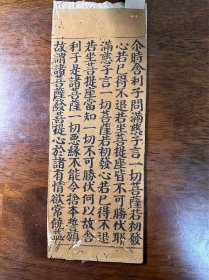 尒時舍利子問滿慈子言一切菩薩若初發
心若已得不退若坐菩提座皆不可勝伏耶
滿慈子言一切菩薩若初發心若已得不退
若坐菩提座當知一切不可勝伏何以故舍
利子是諸菩薩一切惡緣不能令捨本誓願
故謂諸菩薩發菩提心於諸有情欲常饒益